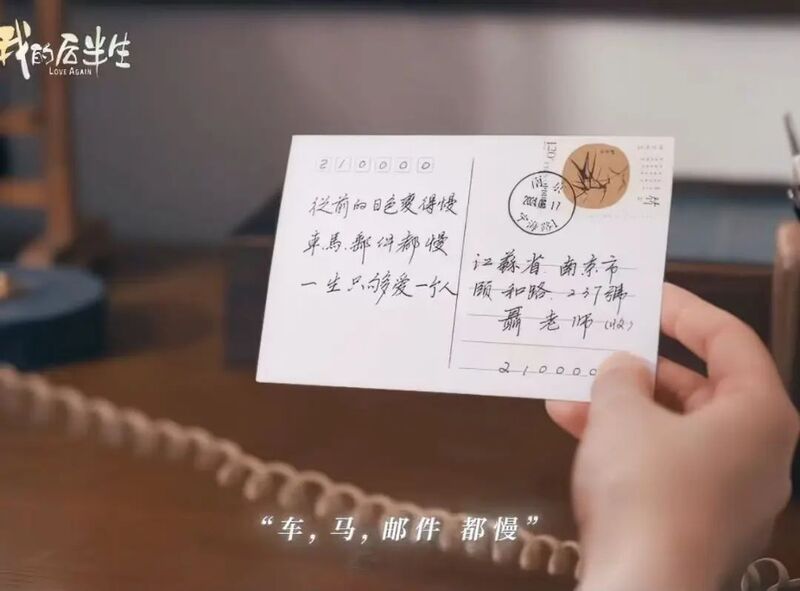 我的后半生
LOVE AGAIN
210000
從前的日色變得慢
車,馬,郵件都慢
一生只够爱一个人
120
竹
江蘇省.南京市
頤和路.237號
聶老师(收)
210000
“车,马,邮件 都慢”